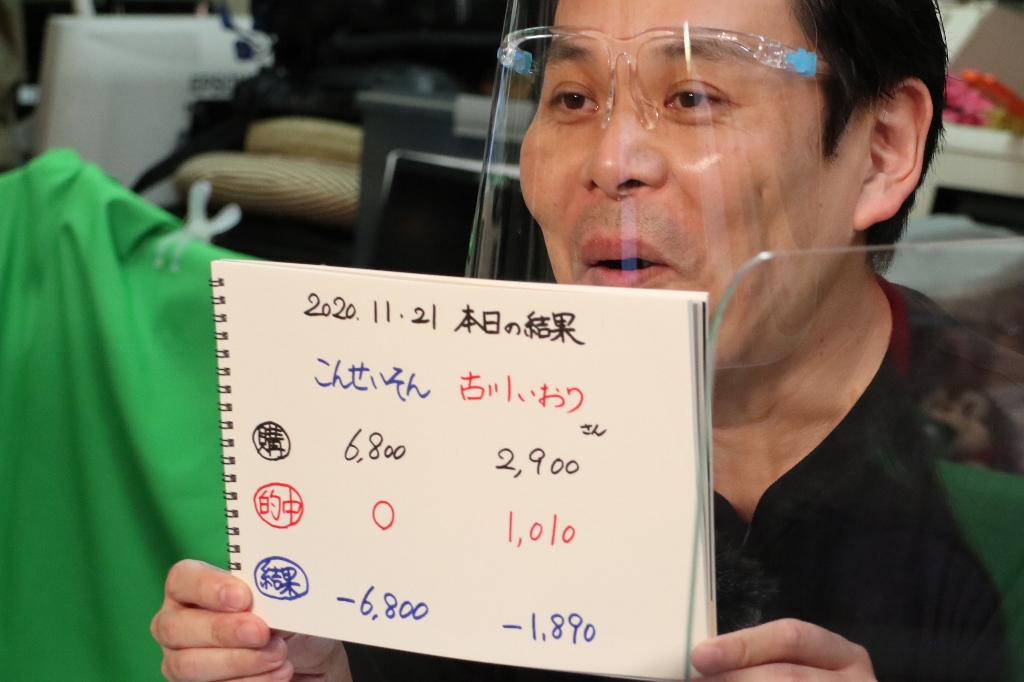 2020.11.21 本日の結果
こんせいそん 古川いおりさん
購 6,800 2,900
的中 0 1,010
結果 -6,800 -1,890